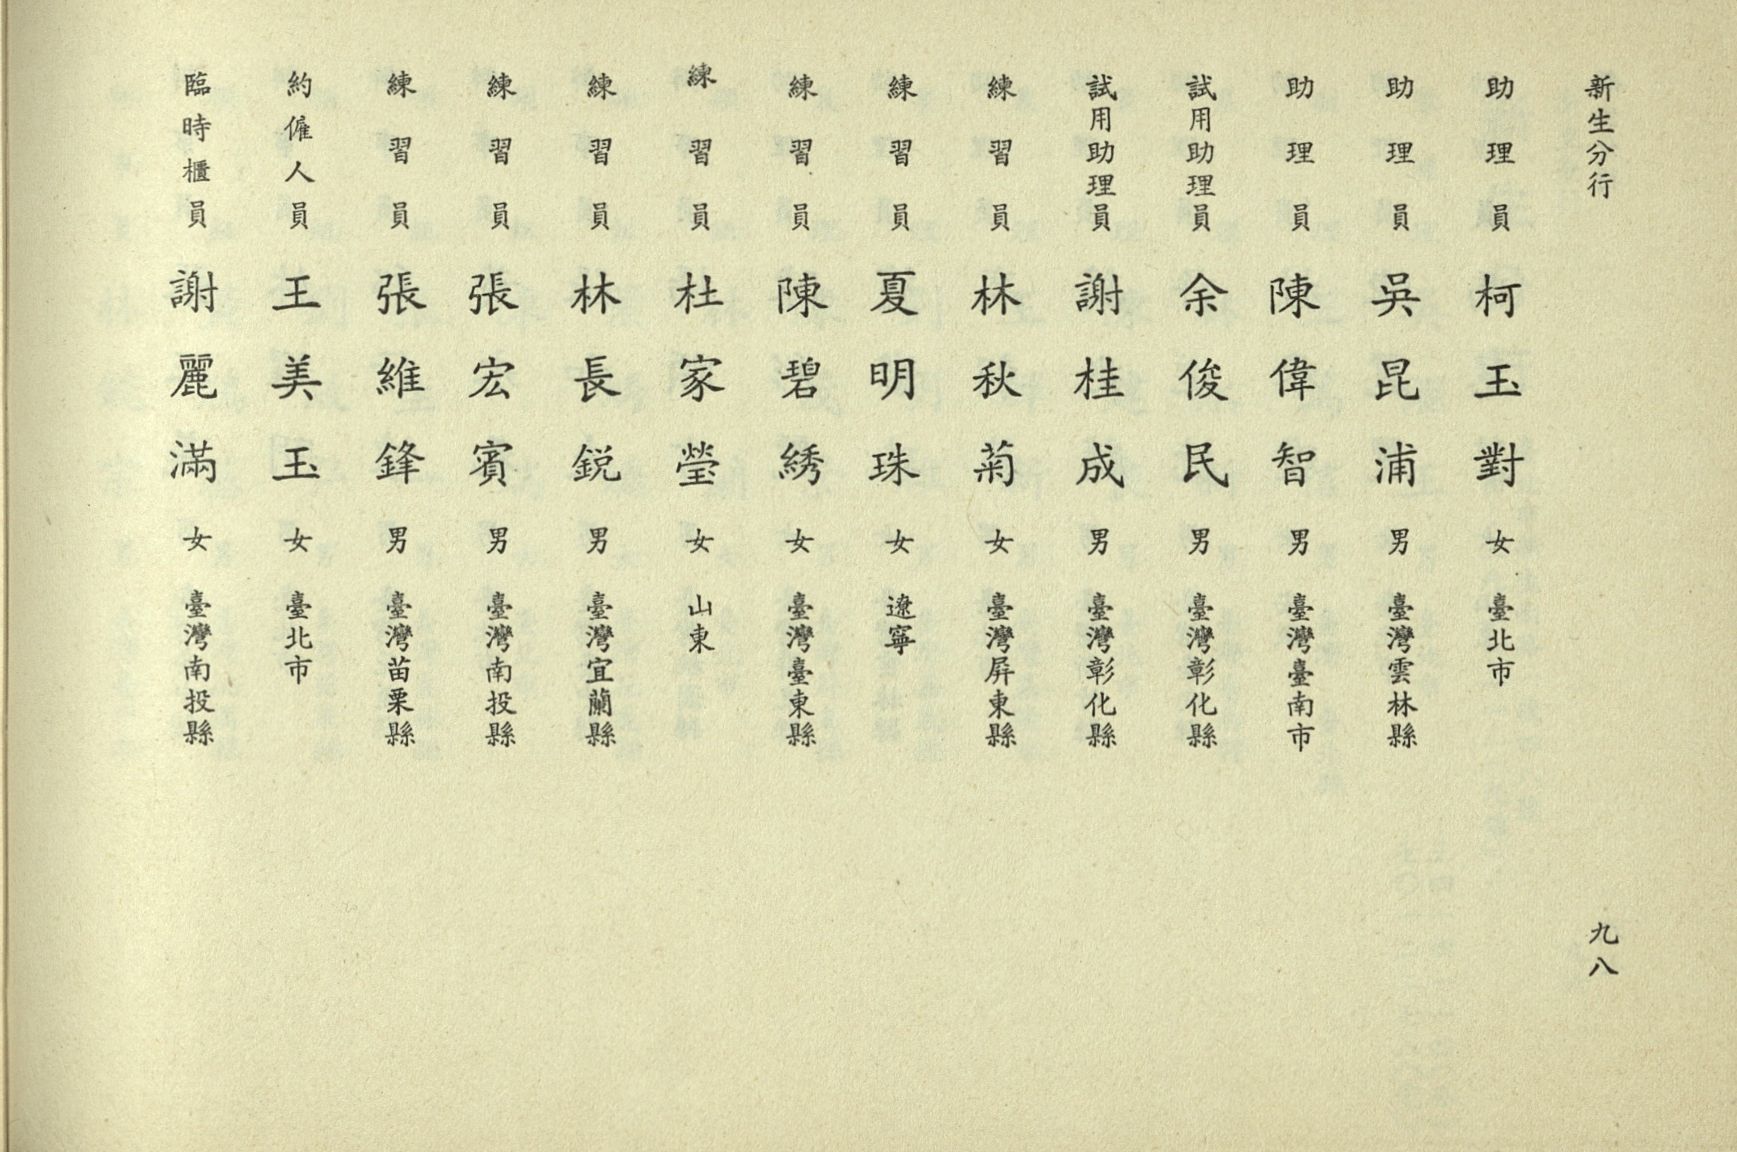 新生分行
九八
助理員 柯玉對 女 臺北市
助理員 吳昆浦 男 臺灣雲林縣
助理員 陳偉智 男 臺灣臺南市
試用助理員 余俊民 男 臺灣彰化縣
試用助理員 謝桂成 男 臺灣彰化縣
練習員 林秋菊 女 臺灣屏東縣
練習員 夏明珠 女 遼寧
練習員 陳碧綉 女 臺灣臺東縣
練習員 杜家瑩 女 山東
練習員 林長銳 男 臺灣宜蘭縣
練習員 張宏賓 男 臺灣南投縣
練習員 張維鋒 男 臺灣苗栗縣
約僱人員 王美玉 女 臺北市
臨時櫃員 謝麗滿 女 臺灣南投縣